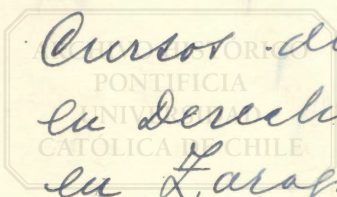 Cursos de
en Derech
en Zarag
ARCHIVO HISTÓRICO
PONTIFICIA
UNIVERSIDAD
CATÓLICA DE CHILE